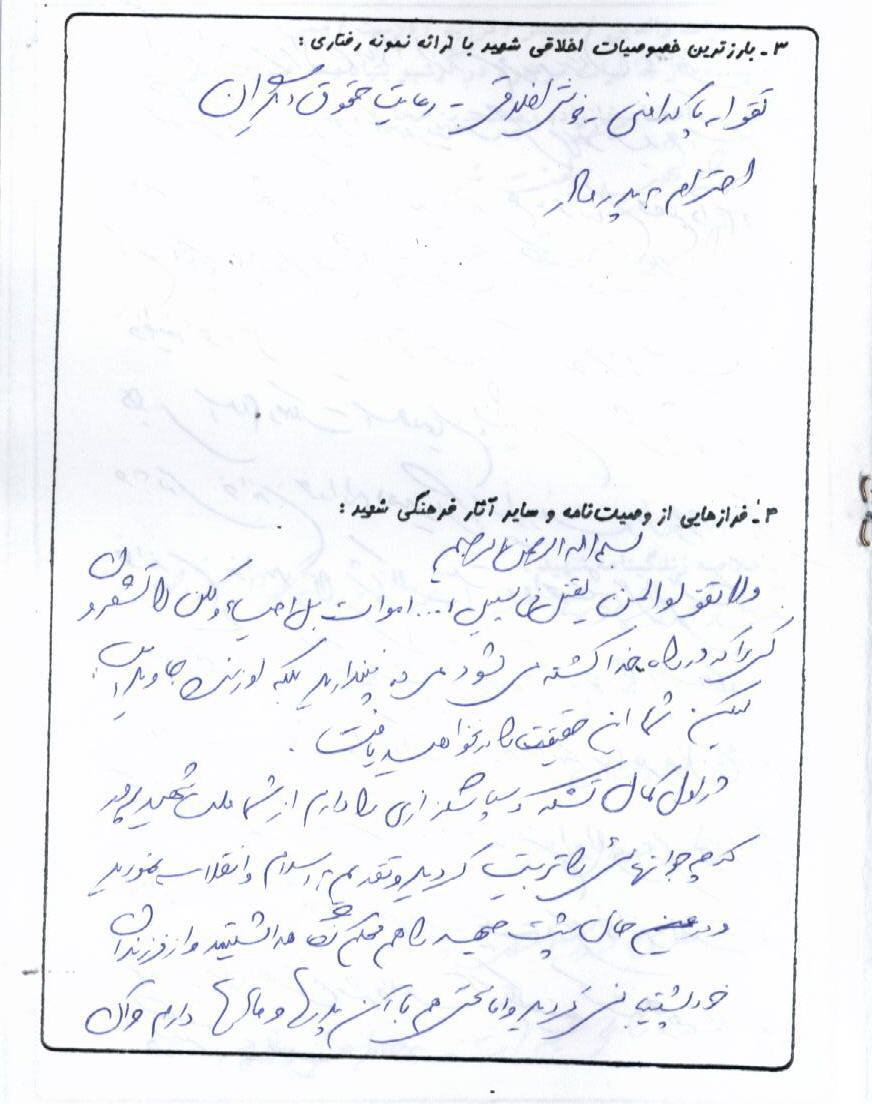 ۳ـ بارزترین خصوصیات اخلاقی شهید با ارائه نمونه رفتاری :
تقوا ـ پاکدامنی ـ خوش اخلاقی ـ رعایت حقوق دیگران
احترام به پدر و مادر
۴ـ فرازهایی از وصیت‌نامه و سایر آثار فرهنگی شهید :
بسم الله الرحمن الرحیم
ولا تقولو المن یقتل فی سبیل ا... اموات بل احیاء ولکن لا تشعرون
کسی را که در راه خدا کشته می شود مرده نپندارید بلکه او زنده جاوید است
لیکن شما این حقیقت را در نخواهید یافت .
در اول کمال تشکر و سپاسگذاری را دارم از شما ملت شهید پرور
که چه جوانهایی را تربیت کردید و تقدیم به اسلام و انقلاب نمودید
و در عین حال پشت جبهه را هم محکم نگه داشتید و از فرزندان
خود پشتیبانی کردید و اما سخنی هم با آن پدرها و مادرها دارم که